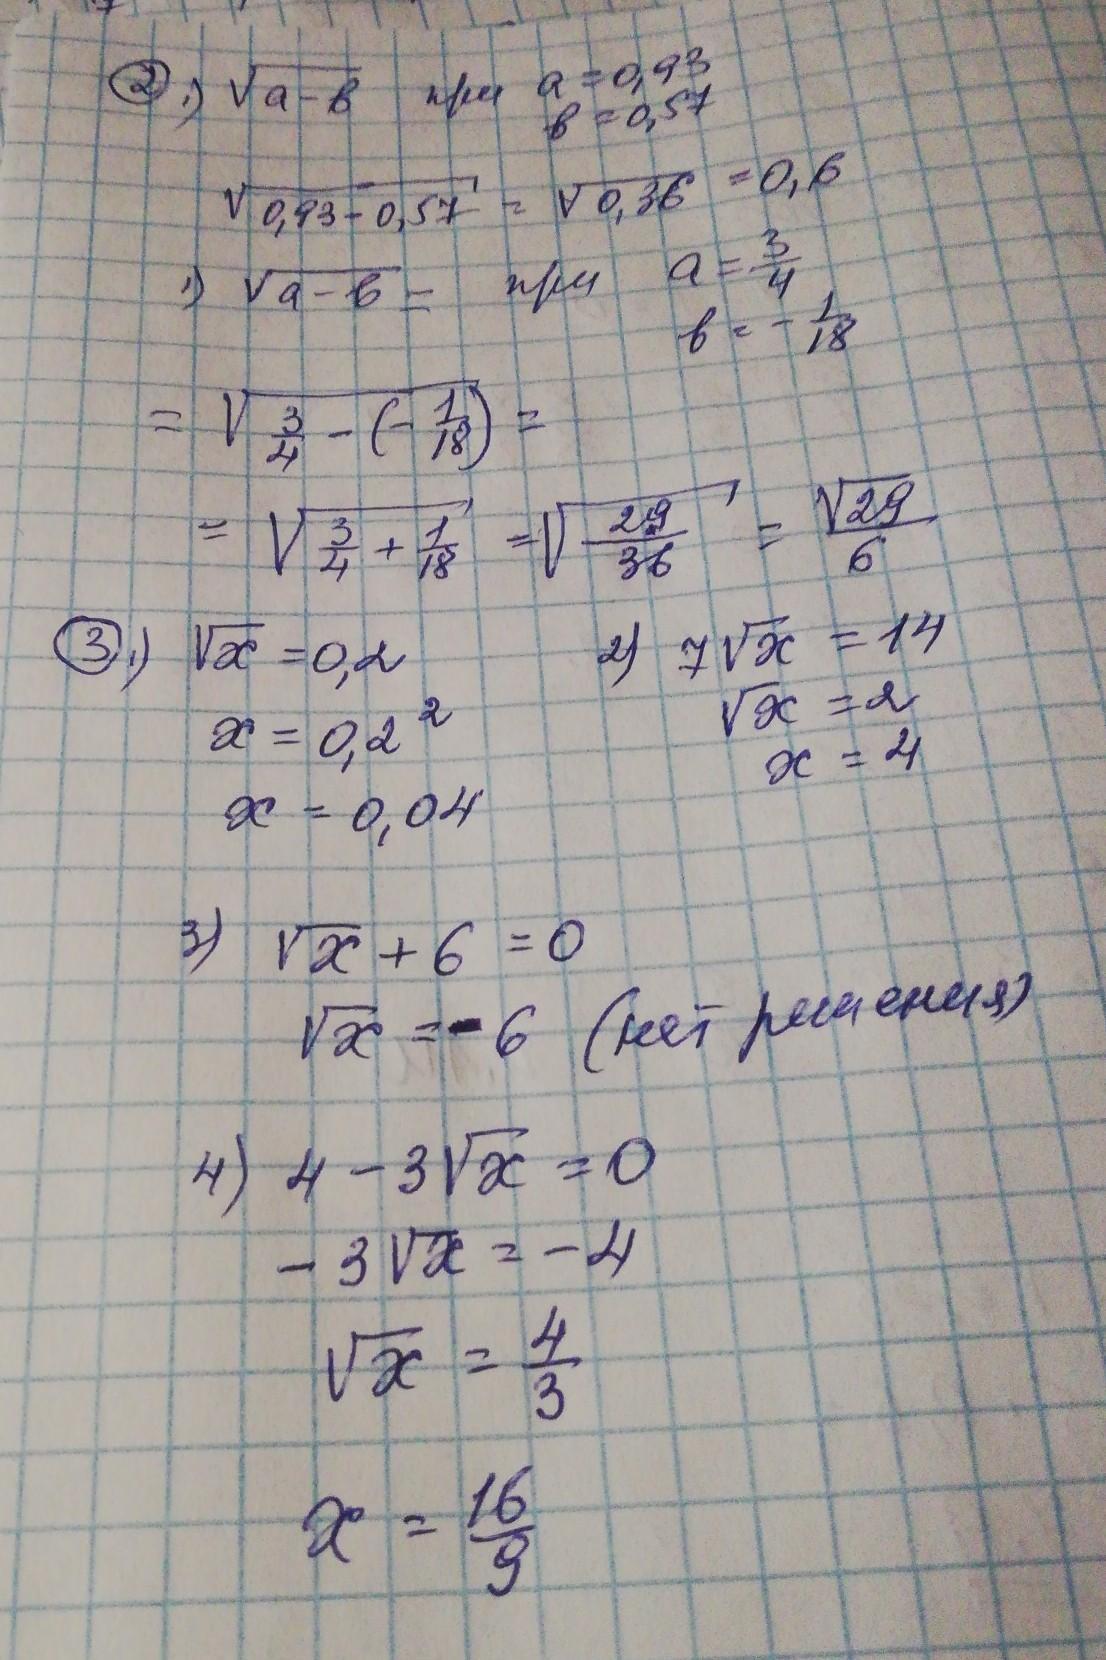 ② 1) √a-b при a=0,93
b=0,57
√0,93-0,57 = √0,36 =0,6
1) √a-b = при a=3/4
b=-1/18
= √3/4-(-1/18) =
= √3/4+1/18 = √29/36 = √29/6
③ 1) √x =0,2 2) 7√x =14
√x =2
x=0,2²
x=4
x=0,04
3) √x+6=0
√x=-6 (нет решения)
4) 4-3√x=0
-3√x=-4
√x=4/3
x=16/9